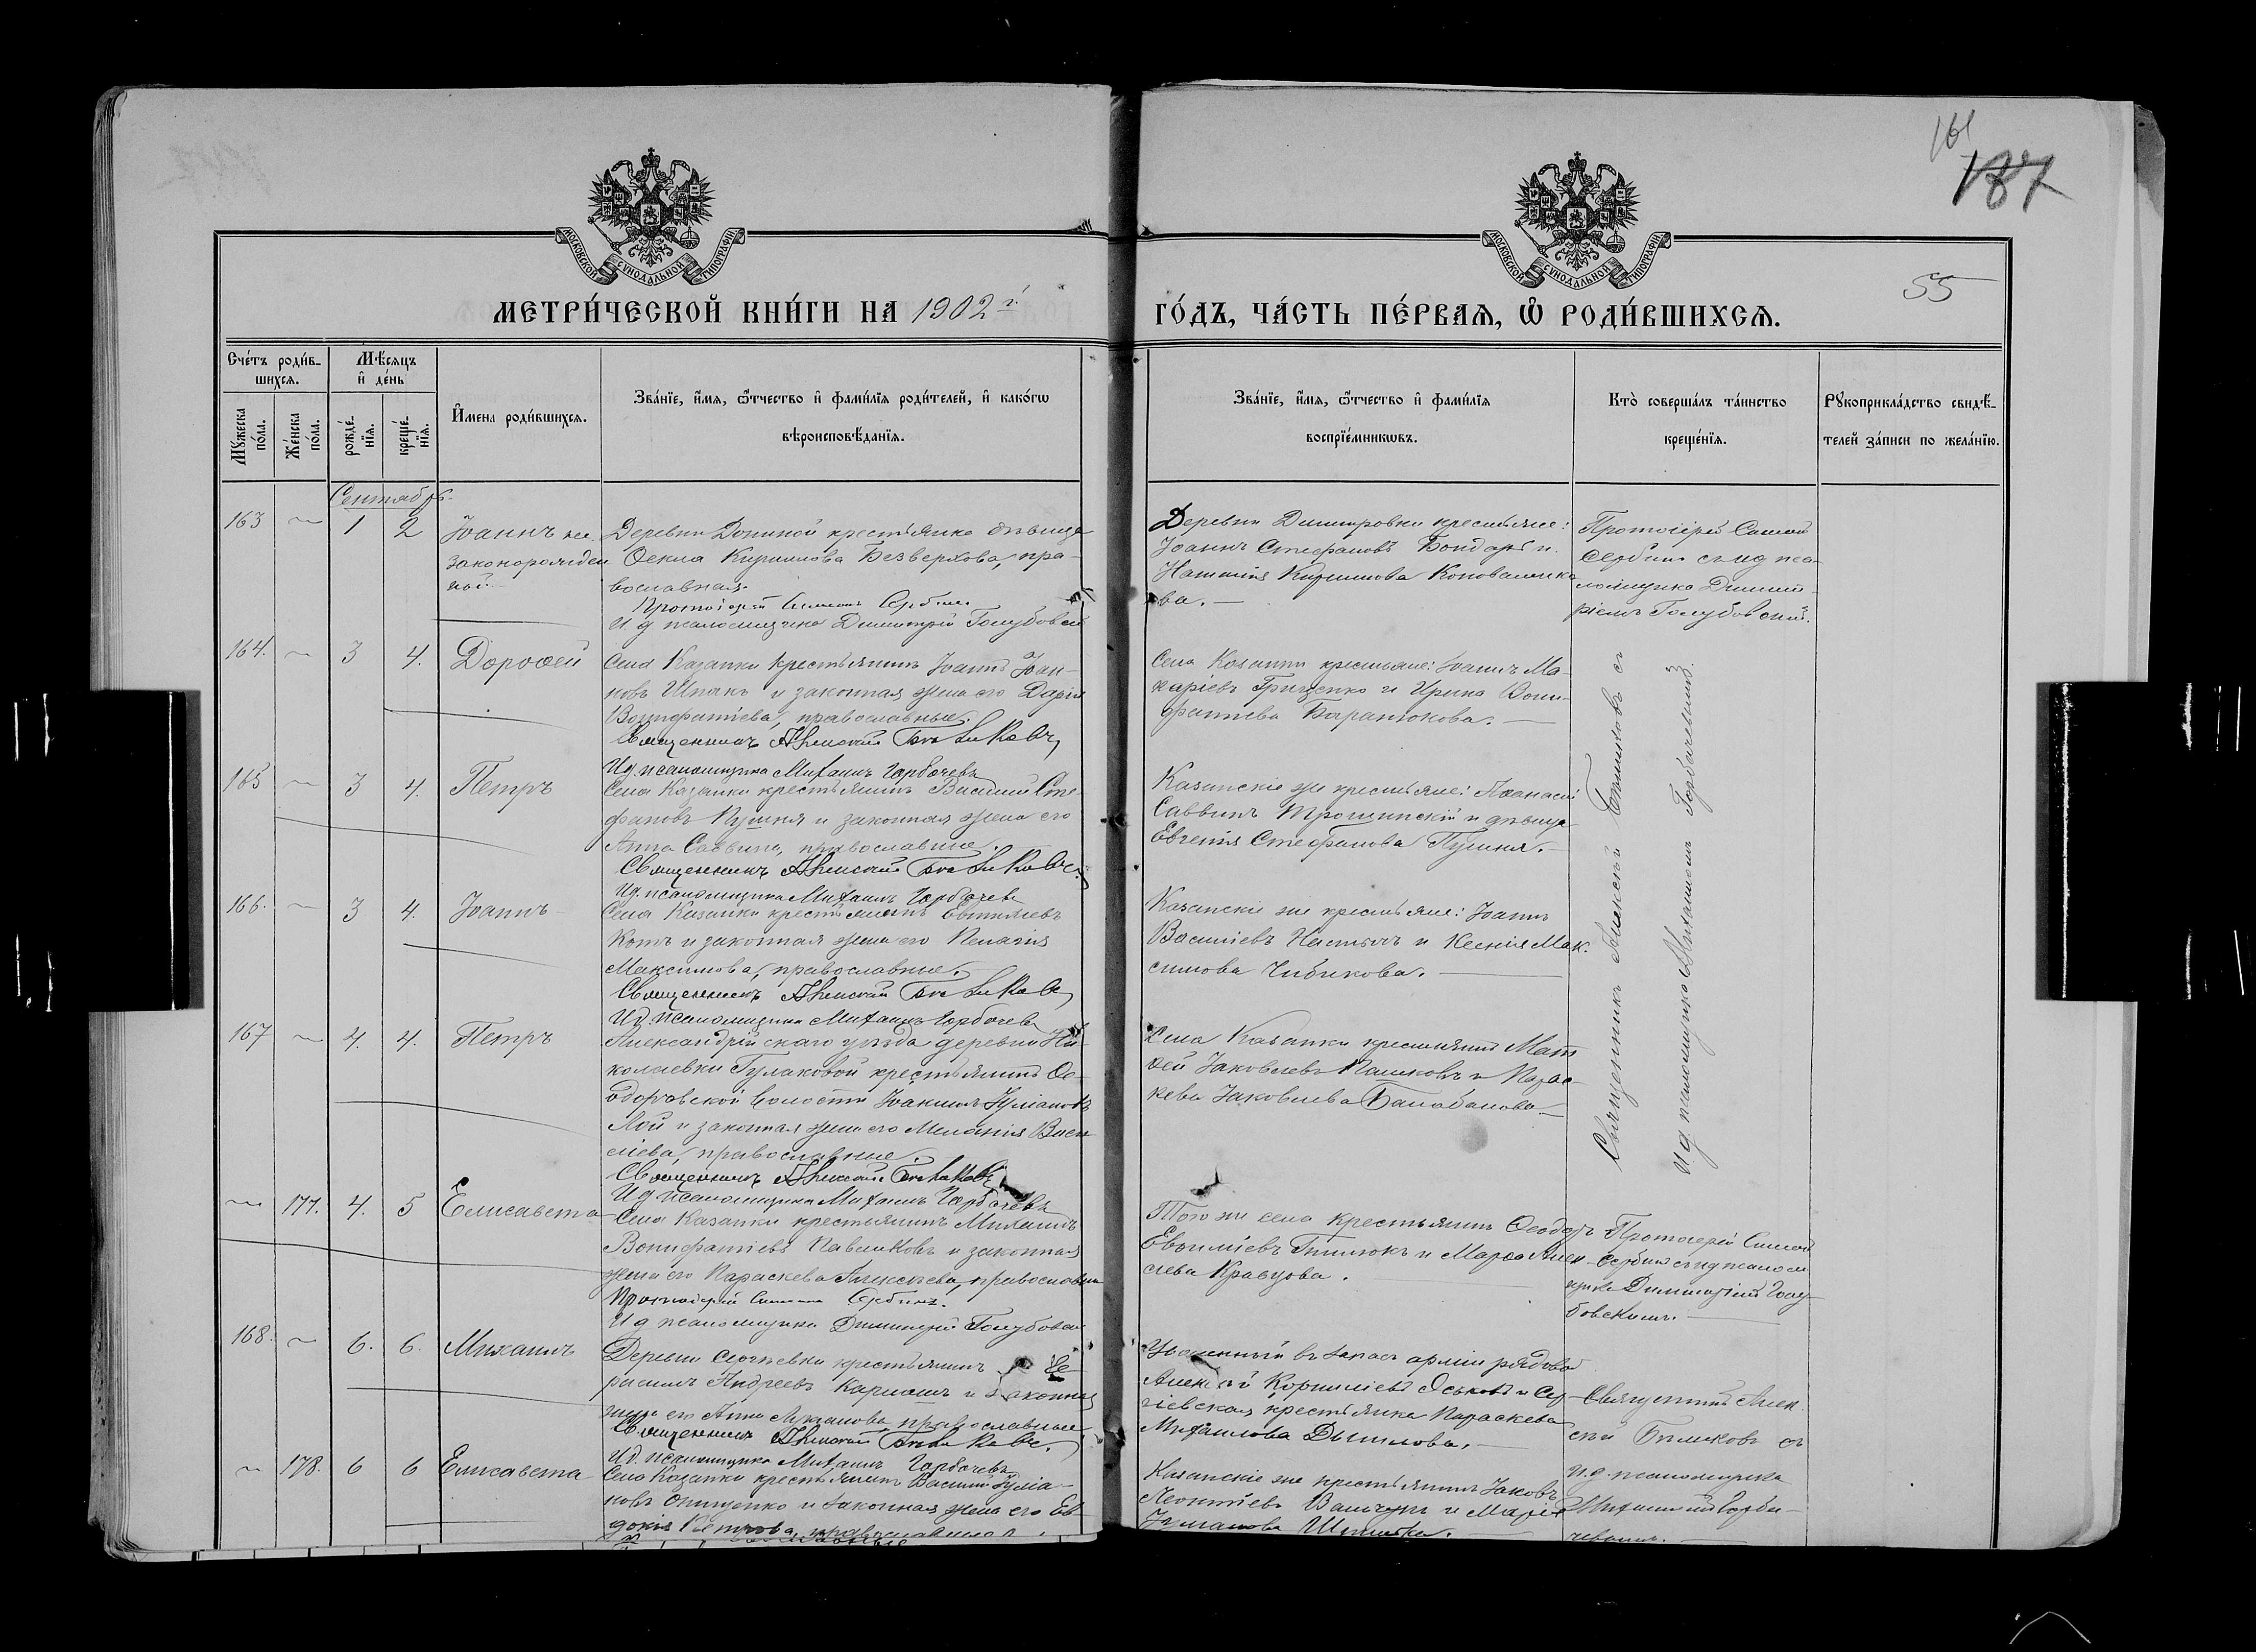 161
187
55
МОСКОВСКОЙ СѴНОДАЛЬНОЙ ТИПОГРАФІИ
МОСКОВСКОЙ СѴНОДАЛЬНОЙ ТИПОГРАФІИ
МЕТРИ́ЧЕСКОЙ КНИ́ГИ НА 1902 г.
ГО́ДЪ, ЧА́СТЬ ПЕ́РВАЯ, Ѡ РОДИ́ВШИХСЯ.
Сче́тъ роди́в-
шихся.
Мѣ́сяцъ
и де́нь
Мꙋжеска по́ла.
Же́нска по́ла.
рожде́-
нїя.
креще́-
нїя.
И҆мена роди́вшихся.
Зва́нїе, и҆́мя, ѻ҆́тчество и҆ фами́лїя роди́телей, и҆ како́гѡ
вѣроисповѣ́данїя.
Зва́нїе, и҆́мя, ѻ҆́тчество и҆ фами́лїя
воспрїе́мникѡвъ.
Кто̀ соверша́лъ та́инство
креще́нїя.
Рꙋкоприкла́дство свидѣ́-
телей за́писи по жела́нїю.
Сентябрь
163 1 2 Іоаннъ не-
законорожден
ной
Деревни Дониной крестьянка дѣвица
Ѳекла Кириллова Безверхова, пра-
вославная.
Протоіерей Симеонъ Сербинъ
И д псаломщика Димитрій Голубовскій
Деревни Димитровки крестьяне:
Іоаннъ Стефановъ Бондарь и
Наталія Кириллова Коновальчико
ва.
Протоіерей Симеонъ
Сербинъ съ ид пса-
ломщика Димит-
ріемъ Голубовскимъ.
164. 3 4. Дороѳей
Села Казанки крестьянинъ Іоаннъ Іоан-
новъ Шпакъ и законная жена его Дарія
Вонифатіева, православные.
Священникъ Алексій Бѣликовъ
Ид. псаломщика Михаилъ Горбачевъ
Села Козанки крестьяне: Іоаннъ Ма-
каріевъ Грищенко и Ирина Вони-
фатіева Баранюкова.
Священникъ Алексѣй Бѣликовъ съ
и д псаломщика Михаиломъ Горбачевымъ.
165 3 4. Петръ
Села Казанки крестьянинъ Василій Сте-
фановъ Пушня и законная жена его
Анна Саввина, православные.
Священникъ Алексій Бѣликовъ
Ид. псаломщика Михаилъ Горбачевъ
Казанскіе же крестьяне: Аѳанасій
Саввинъ Трощинскій и дѣвица
Евгенія Стефанова Пушня.
166. 3 4. Іоаннъ
Села Казанки крестьянинъ Евѳиміевъ
Котъ и законная жена его Пелагія
Максимова, православные.
Священникъ Алексій Бѣликовъ
Ид псаломщика Михаилъ Горбачевъ
Казанскіе же крестьяне: Іоаннъ
Василіевъ и Ксенія Мак-
симова Чибикова.
167 4. 4. Петръ
Александрійскаго уѣзда деревни Ни-
колаевки Гулаковой крестьянинъ Ѳе-
одоровской волости Іоакимъ Іуліановъ
Лой и законная жена его Меланія Васи-
ліева, православные.
Священникъ Алексій Бѣликовъ
Ид псаломщика Михаилъ Горбачевъ
Села Казанки крестьянинъ Мат-
ѳей Іаковлевъ Пашковъ и Парас-
кева Іаковлева Балабанова
177. 4. 5 Елисавета
Села Казанки крестьянинъ Михаилъ
Вонифатіевъ Павликовъ и законная
жена его Параскева Алексѣева, православные
Протоіерей Симеонъ Сербинъ.
И д псаломщика Димитрій Голубовскій
Того же села крестьянинъ Ѳеодоръ
Евѳиміевъ и Марѳа Алек-
сѣева Кравцова.
Протоіерей Симеонъ
Сербинъ съ ид псалом
щика Димитріемъ Голу-
бовскимъ.
168. 6. 6. Михаилъ
Деревни Сергѣевки крестьянинъ Ге-
расимъ Андреевъ и законная
жена его Анна Лукіанова, православные
Священникъ Алексій Бѣликовъ.
И.д. псаломщика Михаилъ Горбачевъ
Уволенный въ запасъ арміи рядовой
Алексѣй Корниліевъ Яськовъ и Сер-
гіевская крестьянка Параскева
Михайлова Дышлова.
Священникъ Алек-
сѣй Бѣликовъ съ
и.д. псаломщика
Михаиломъ Горба-
чевымъ.
178. 6 6 Елисавета
Села Казанки крестьянинъ Василій Іуліа-
новъ Онищенко и законная жена его Ев-
докія Петрова, православные.
Казанскіе же крестьянинъ Іаковъ
Леонтіевъ и Марія